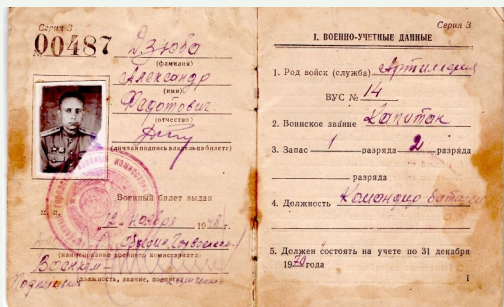 Серия З
00487
Дзюба
(фамилия)
Александр
(имя)
Федотович
(отчество)
(личная подпись владельца билета)
Военный билет выдан
М. П.
12 ноября 1948 г.
(наименование военного комиссариата)
Военком-
Подполковник
должность, звание,
Серия З
I. ВОЕННО-УЧЕТНЫЕ ДАННЫЕ
1. Род войск (служба) Артиллерия
ВУС № 14
2. Воинское звание Капитан
3. Запас 1 разряда 2 разряда
разряда
4. Должность Командир батареи
5. Должен состоять на учете по 31 декабря
1970 года
1